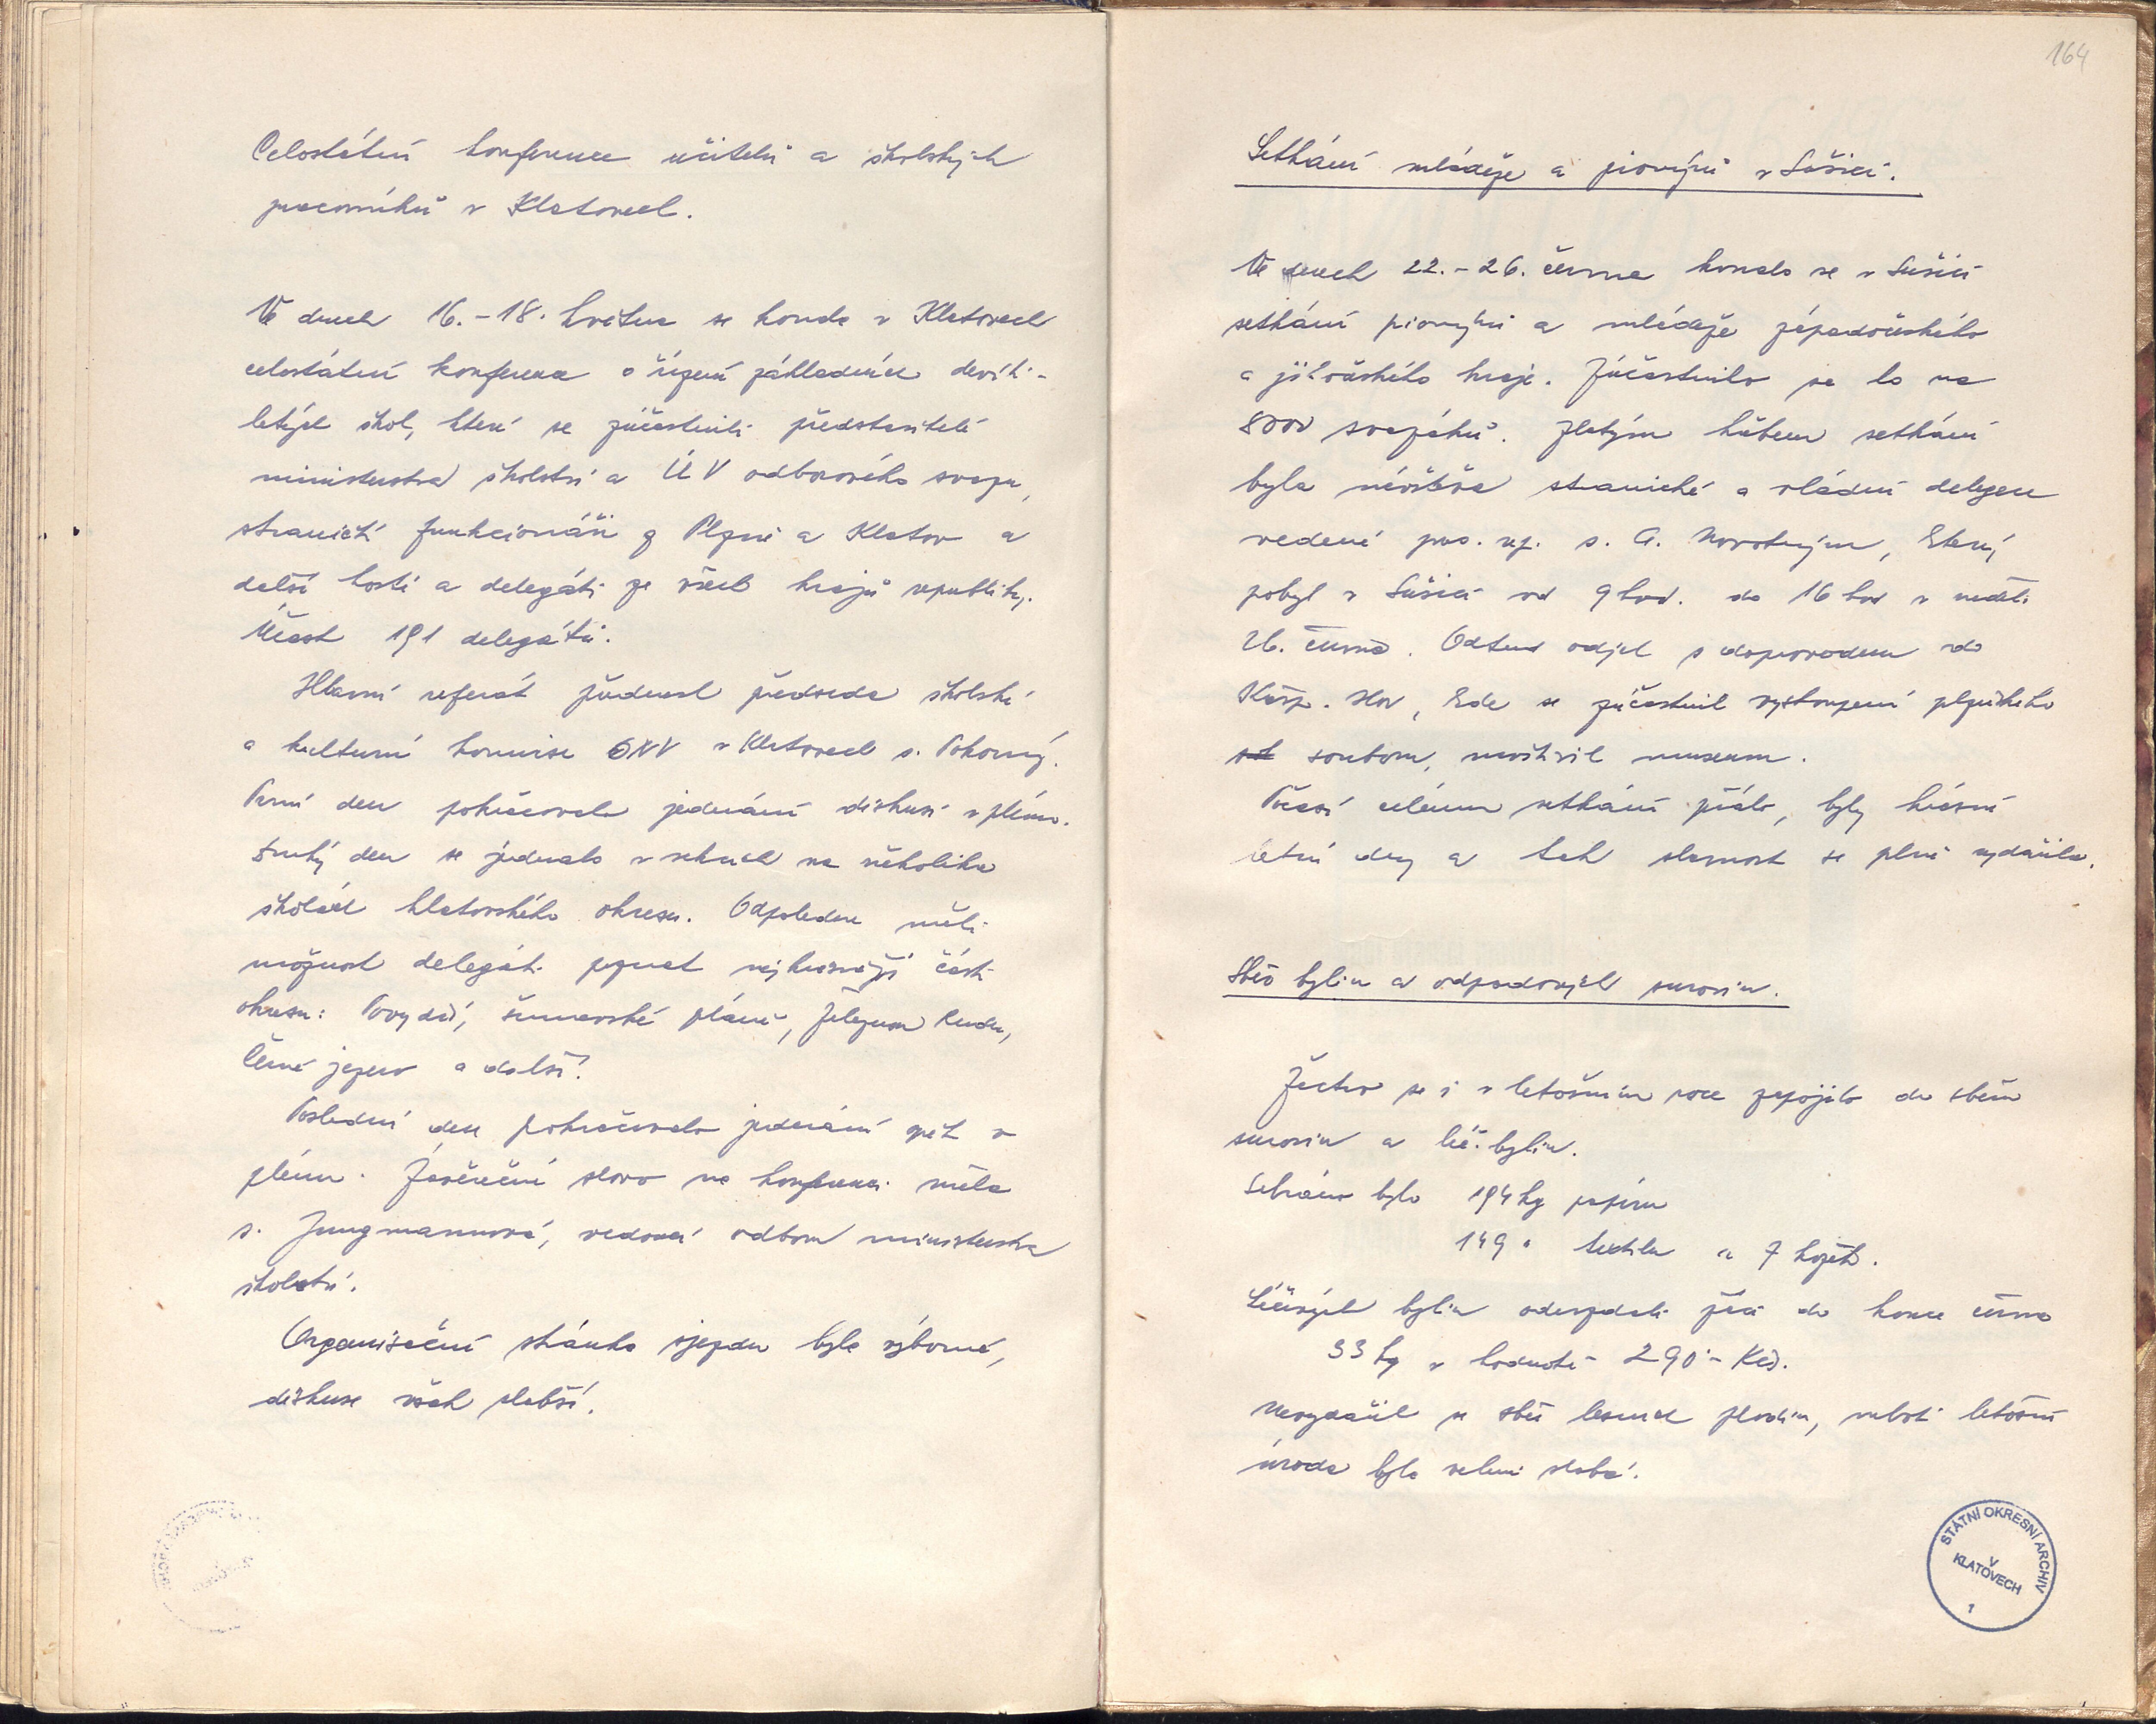 Celostátní konference učitelů a školských
pracovníků v Klatovech.
Ve dnech 16.-18. května se konala v Klatovech
celostátní konference o řízení základních devíti-
letých škol, které se zúčastnili představitelé
ministerstva školství a ÚV odborového svazu,
straničtí funkcionáři z Plzně a Klatov a
další hosté a delegáti ze všech krajů republiky.
Účast 191 delegátů.
Hlavní referát přednesl předseda školské
a kulturní komise ONV v Klatovech s. Pokorný.
První den pokračovalo jednání diskusí v plénu.
Druhý den se jednalo v sekcích na několika
školách klatovského okresu. Odpoledne měli
možnost delegáti poznat nejkrásnější části
okresu: Povydří, šumavské pláně, Železnou Rudu,
Černé jezero a další.
Poslední den pokračovalo jednání opět v
plénu. Závěrečné slovo na konferenci měla
s. Jungmannová, vedoucí odboru ministerstva
školství.
Organisační stránka sjezdu byla výborná,
diskuse však slabší.
164
Setkání mládeže a pionýrů v Sušici.
Ve dnech 22.-26. června konalo se v Sušici
setkání pionýrů a mládeže západočeského
a jihočeského kraje. Zúčastnilo se ho na
8000 svazáků. Zlatým hřebem setkání
byla návštěva stranické a vládní delegace
vedené pres. rep. s. A. Novotným, který
pobyl v Sušici od 9 hod. do 16 hod v neděli
26. června. Odtud odjel s doprovodem do
Kašp. Hor, kde se zúčastnil vystoupení plzeňského
souboru, navštívil museum.
Počasí celému setkání přálo, byly krásné
letní dny a tak slavnost se plně vydařila.
Sběr bylin a odpadových surovin.
Žactvo se i v letošním roce zapojilo do sběru
surovin a léč. bylin.
Sebráno bylo 194 kg papíru
149 " textilu a 7 kožek.
Léčivých bylin odevzdali žáci do konce června
33 kg v hodnotě 290.- Kčs.
Nevydařil se sběr lesních plodin, neboť letošní
úroda byla velmi slabá.
STÁTNÍ OKRESNÍ ARCHIV
V
KLATOVECH
1